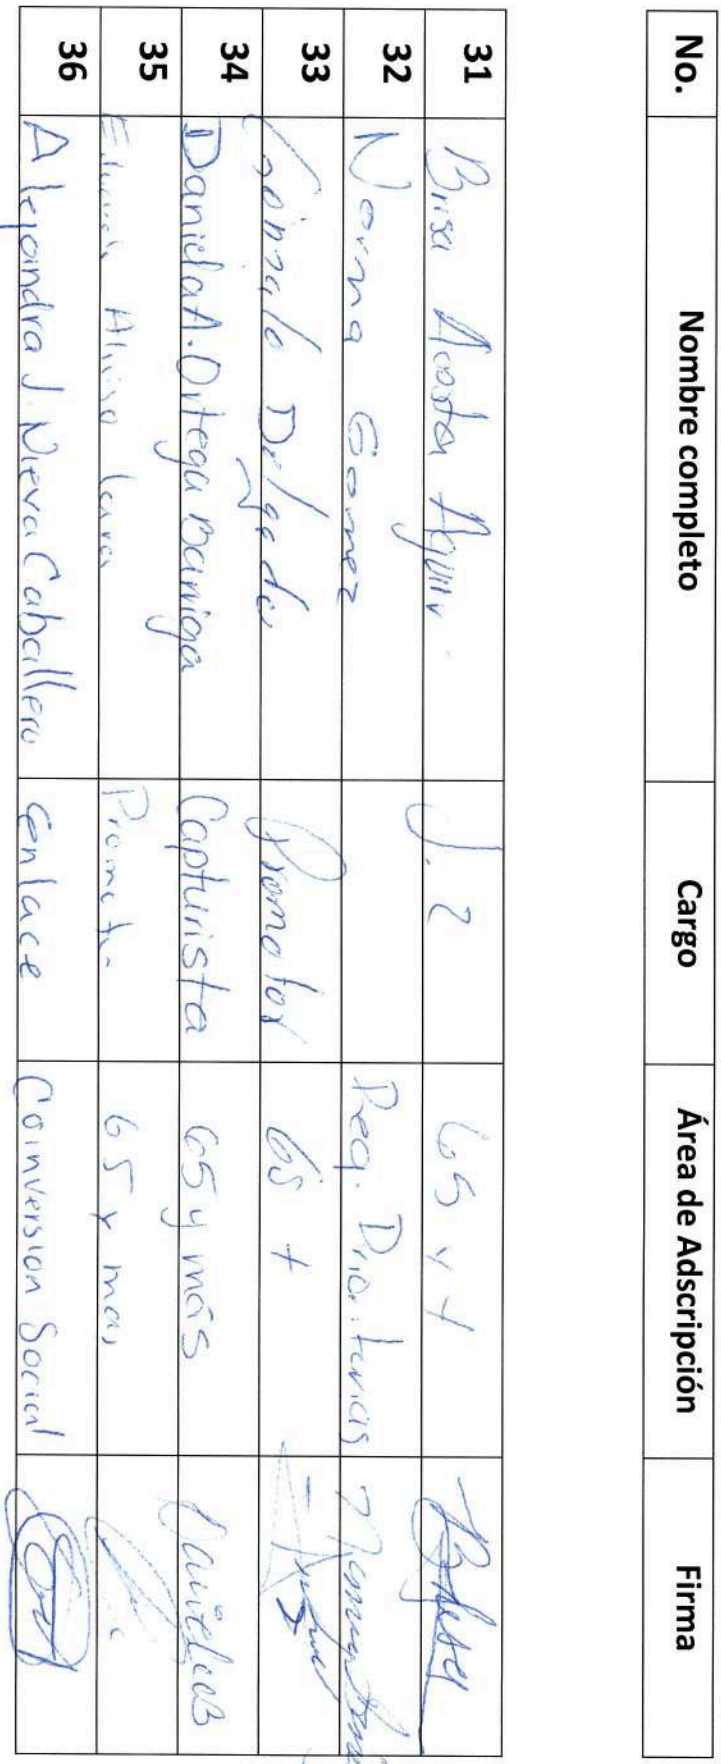 No. Nombre completo Cargo Área de Adscripción Firma
31 Brisa Acosta 65 y +
32 Norma Gomez Reg. Prioritarias
33 Gonzalo Delgado Promotor 65 +
34 Daniela A. Ortega Barriga Capturista 65 y más Daniela B
35 Promotor 65 y mas
36 Alejandra J. Nieva Caballero Enlace Coinversion Social